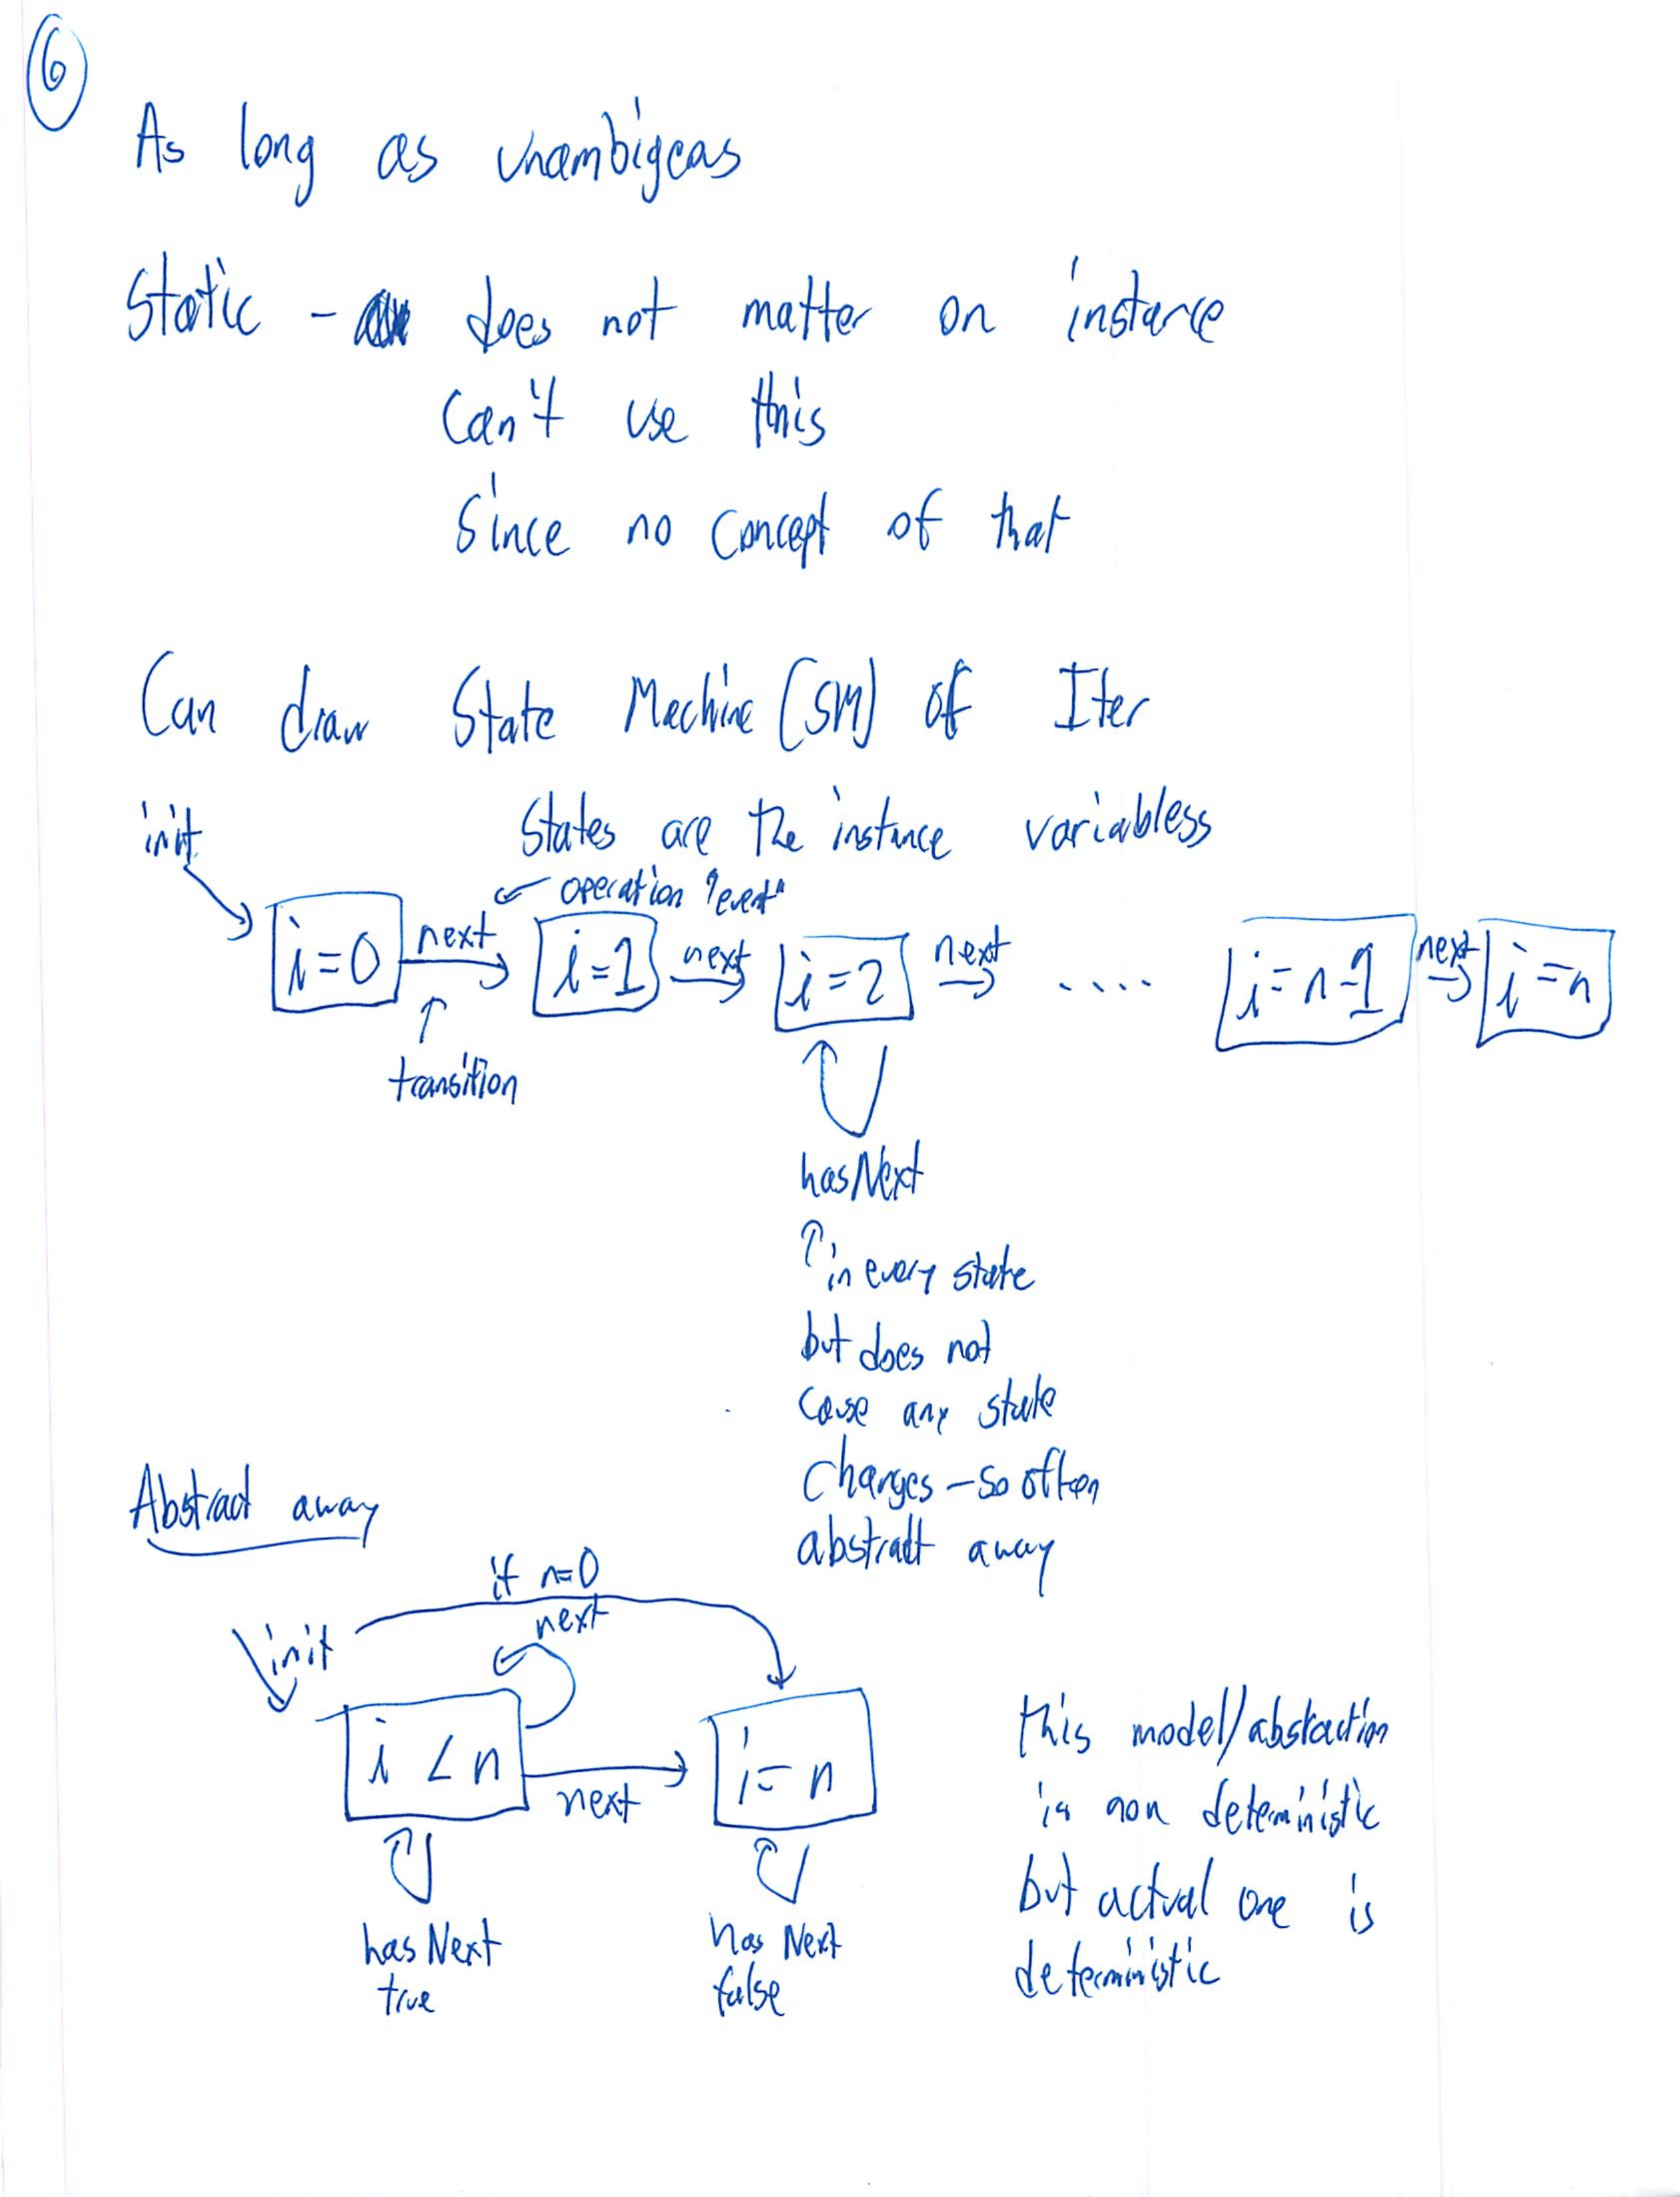 6
As long as unambigeas
Static - does not matter on instance
Can't use this
Since no concept of that
Can draw State Machine (SM) of Iter
init
States are the instance variabless
operation "event"
i=0 next i=1 next i=2 next .... i=n-1 next i=n
transition
hasNext
in every state
but does not
cause any state
changes - so often
abstract away
Abstract away
if n=0
next
init
i < n
next
i = n
has Next
true
has Next
false
this model/abstraction
is non deterministic
but actual one is
deterministic